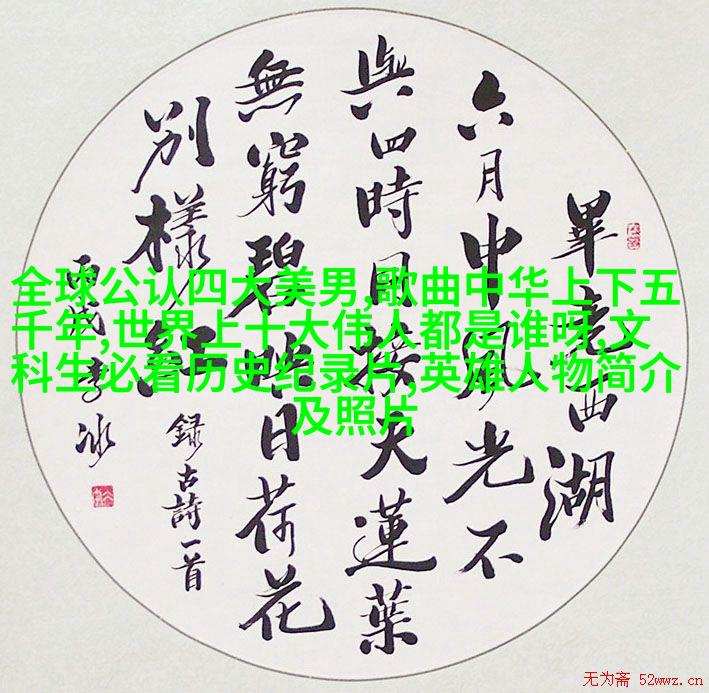 畢竟西湖
六月中風光不
與四時同接天蓮葉
無窮碧映日荷花
別樣紅
録古詩一首
丙戌李冰
全球公认四大美男,歌曲中华上下五
千年,世界上十大伟人都是谁呀,文
科生必看历史纪录片,英雄人物简介
及照片
无为斋 52wwz.cn